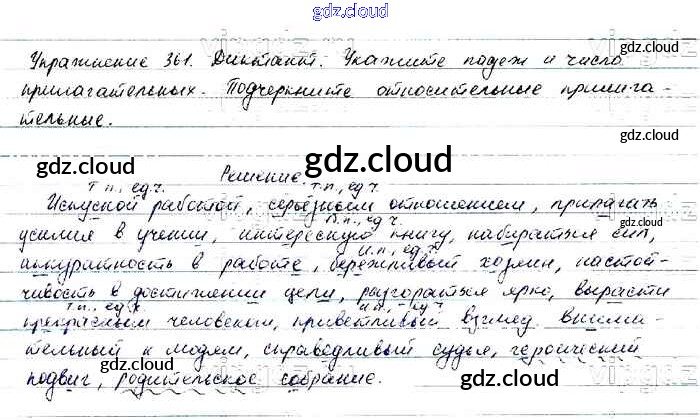 gdz.cloud
gdz.cloud
Упражнение 361. Диктант. Укажите падеж и число
gdz.cloud
прилагательных. Подчеркните относительные прилага-
тельные.
gdz.cloud
gdz.cloud
gdz.cloud
Решение.
т.п., ед.ч. т.п., ед.ч.
Искусной работой, серьёзным отношением, прилагать
В.п., ед.ч.
усилия в учении, интересную книгу, набираться сил,
gdz.cloud
И.п., ед.ч.
аккуратность в работе, бережливый хозяин, настой-
чивость в достижении цели, разгораться ярко, вырасти
т.п., ед.ч. И.п., ед.ч.
прекрасным человеком, приветливый взгляд. внима-
тельный к людям, справедливый судья, героический
gdz.cloud
подвиг, родительское собрание.
gdz.cloud
gdz.cloud